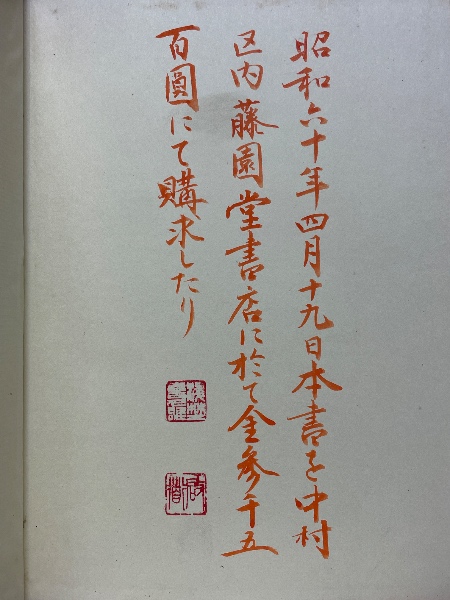 昭和六十年四月十九日本書を中村
区内藤園堂書店に於て金参千五
百圓にて購求したり